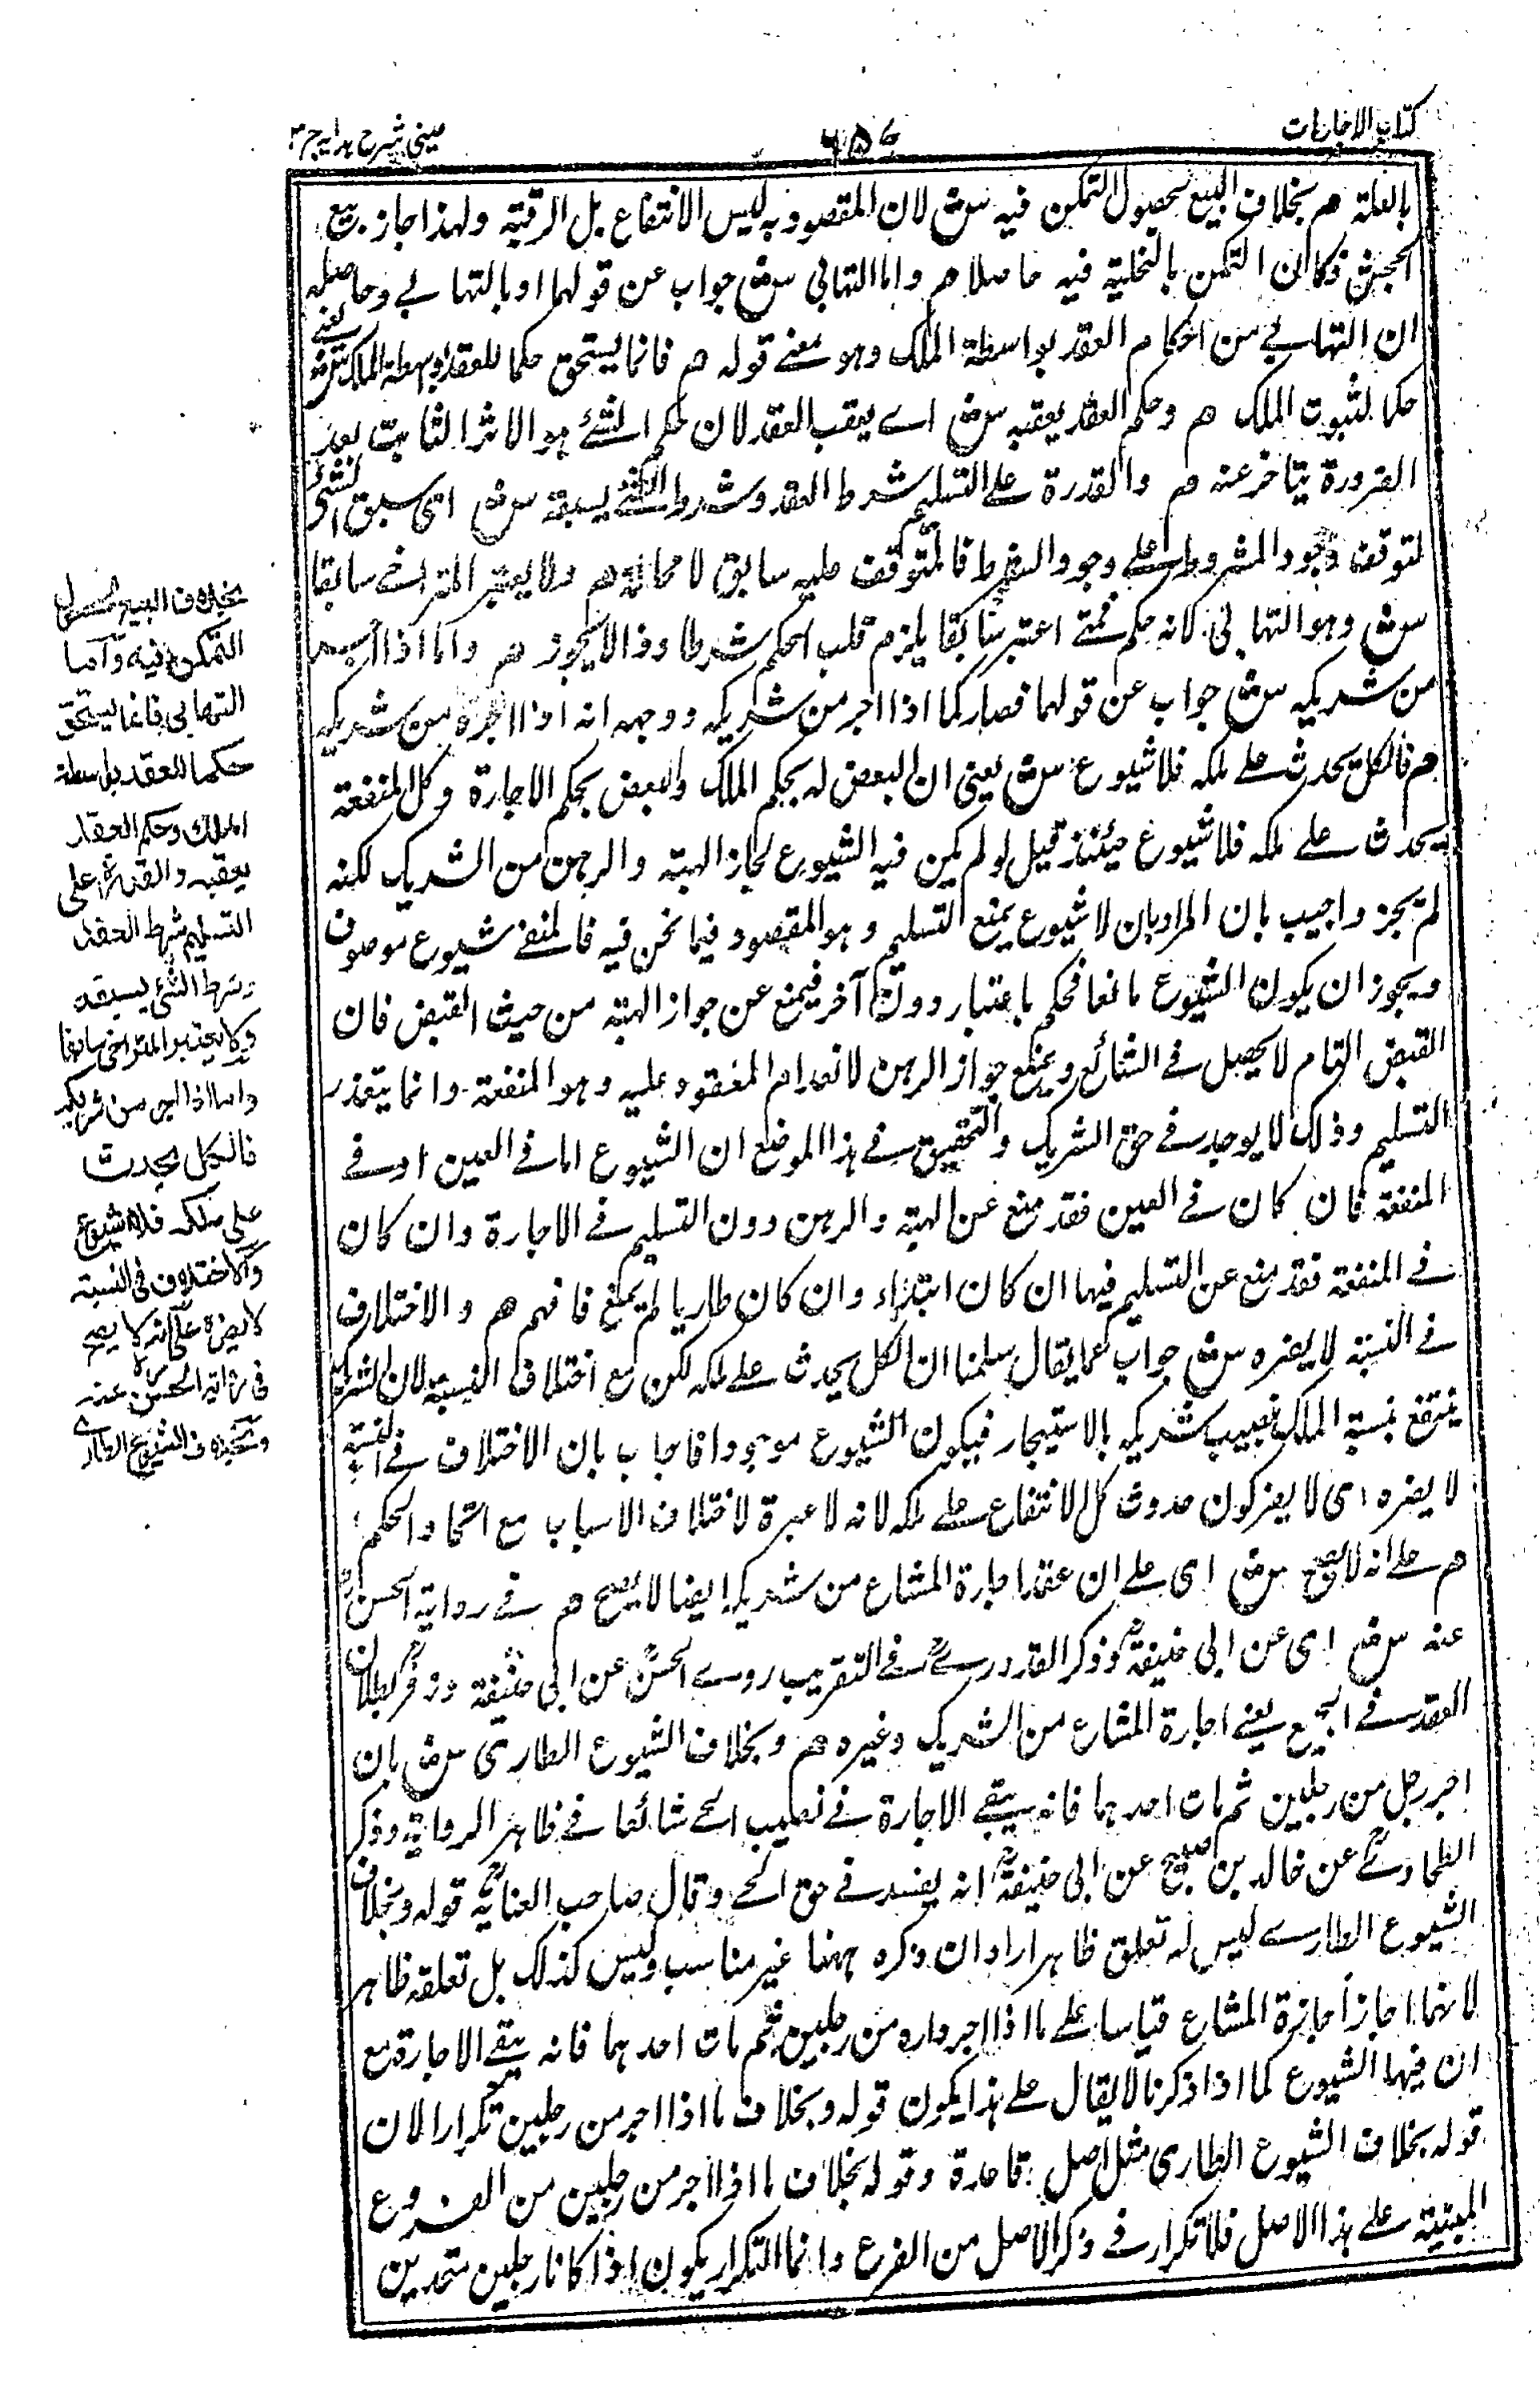 كتاب الاجارات
٦٥٤
عيني شرح هدايه ج ٣
بالعلة هم بخلاف البيع لحصول التمكن فيه سش لان المقصود به ليس الانتفاع بل الرقبة ولهذا جاز بيع
الجحش فكان التمكن بالتخلية فيه حاصلا هم واما التهايي سش جواب عن قولهما او بالتهايے وحاصله
ان التهايے من احكام العقد بواسطة الملك وهو معنے قوله هم فانما يستحق حكما للعقد بواسطة الملك سش يعنے
حكما لثبوت الملك هم وحكم العقد يعقبه سش اے يعقب العقد لان حكم الشئ هو الاثر الثابت بعد
الضرورة يتاخر عنه هم والقدرة علے التسليم شرط العقد وشرط الشئ يسبقه سش اى سبق الشئ
لتوقف وجود المشروط علے وجود الشرط فالمتوقف عليه سابق لا محالة هم ولا يعتبر المتراخے سابقا
سش وهو التهايى لانه حكم فمتے اعتبر سابقا يلزم قلب الحكم شرطا وذا لا يجوز هم واما اذا آجر
من شريكه سش جواب عن قولهما فصار كما اذا اجر من شريكه ووجهه انه اذا اجره من شريكه
هم فالكل يحدث علے ملكه فلا شيوع سش يعنى ان البعض له بحكم الملك والبعض بحكم الاجارة وكل المنفعة
يحدث علے ملكه فلا شيوع حينئذ قيل لو لم يكن فيه الشيوع لجاز الهبة والرهن من الشريك لكنه
لم يجز واجيب بان المراد بان لا شيوع يمنع التسليم وهو المقصود فيما نحن فيه فالمنفے شيوع موصوف
ويجوز ان يكون الشيوع مانعا لحكم باعتبار دون آخر فيمنع عن جواز الهبة من حيث القبض فان
القبض التام لا يحصل فے الشائع ويمنع جواز الرهن لانعدام المعقود عليه وهو المنفعة وانما يتعذر
التسليم وذلك لا يوجد فے حق الشريك والتحقيق فے هذا الموضع ان الشيوع اما فے العين او فے
المنفعة فان كان فے العين فقد منع عن الهبة والرهن دون التسليم فے الاجارة وان كان
فے المنفعة فقد منع عن التسليم فيها ان كان ابتداء وان كان طاريا لم يمنع فافهم هم والاختلاف
فے النسبة لا يضره سش جواب عما يقال سلمنا ان الكل يحدث علے ملكه لكن مع اختلاف النسبة لان الشريك
ينتفع بنسبة الملك بنصيب شريكه بالاستيجار فيكون الشيوع موجودا فاجاب بان الاختلاف فے النسبة
لا يضره اى لا يضر كون حدوث كل الانتفاع علے ملكه لانه لا عبرة لاختلاف الاسباب مع اتحاد الحكم
هم علے انه لا يصح سش اى علے ان عقد اجارة المشاع من شريكه ايضا لا يصح هم فے رواية الحسنؒ
عنه سش اى عن ابى حنيفةؒ وذكر القدورےؒ فے التقريب روے الحسنؒ عن ابى حنيفة وزفرؒ بطلان
العقد فے الجميع يعنے اجارة المشاع من الشريك وغيره هم وبخلاف الشيوع الطارى سش بان
اجر رجل من رجلين ثم مات احدهما فانه يبقے الاجارة فے نصيب الحے شائعا فے ظاهر الرواية وذكر
الطحاوےؒ عن خالد بن صبيح عن ابى حنيفةؒ انه يفسد فے حق الحے وقال صاحب العنايةؒ قوله وبخلاف
الشيوع الطارے ليس له تعلق ظاهر اراد ان ذكره ههنا غير مناسب وليس كذلك بل تعلقه ظاهر
لانهما اجازا اجازة المشاع قياسا علے ما اذا اجر داره من رجلين ثم مات احدهما فانه يبقے الاجارة مع
ان فيها الشيوع كما اذا ذكرنا لا يقال علے هذا يكون قوله وبخلاف ما اذا اجر من رجلين تكرارا لان
قوله بخلاف الشيوع الطارى مثل اصل قاعدة وقوله بخلاف ما اذا اجر من رجلين من الفروع
المبنية علے هذا الاصل فلا تكرار فے ذكر الاصل من الفرع وانما التكرار يكون اذا كانا رجلين متحدين
بخلاف البيع لحصول
التمكن فيه وآما
التهايى فانما يستحق
حكما للعقد بواسطة
الملك وحكم العقد
يعقبه والقدرة على
التسليم شرط العقد
وشرط الشئ يسبقه
ولا يعتبر المتراخى سابقا
واما اذا اجر من شريكه
فالكل يحدث
على ملكه فلا شيوع
والاختلاف فى النسبة
لا يضره على انه لا يصح
فى رواية الحسن عنه
وبخلاف الشيوع الطارے